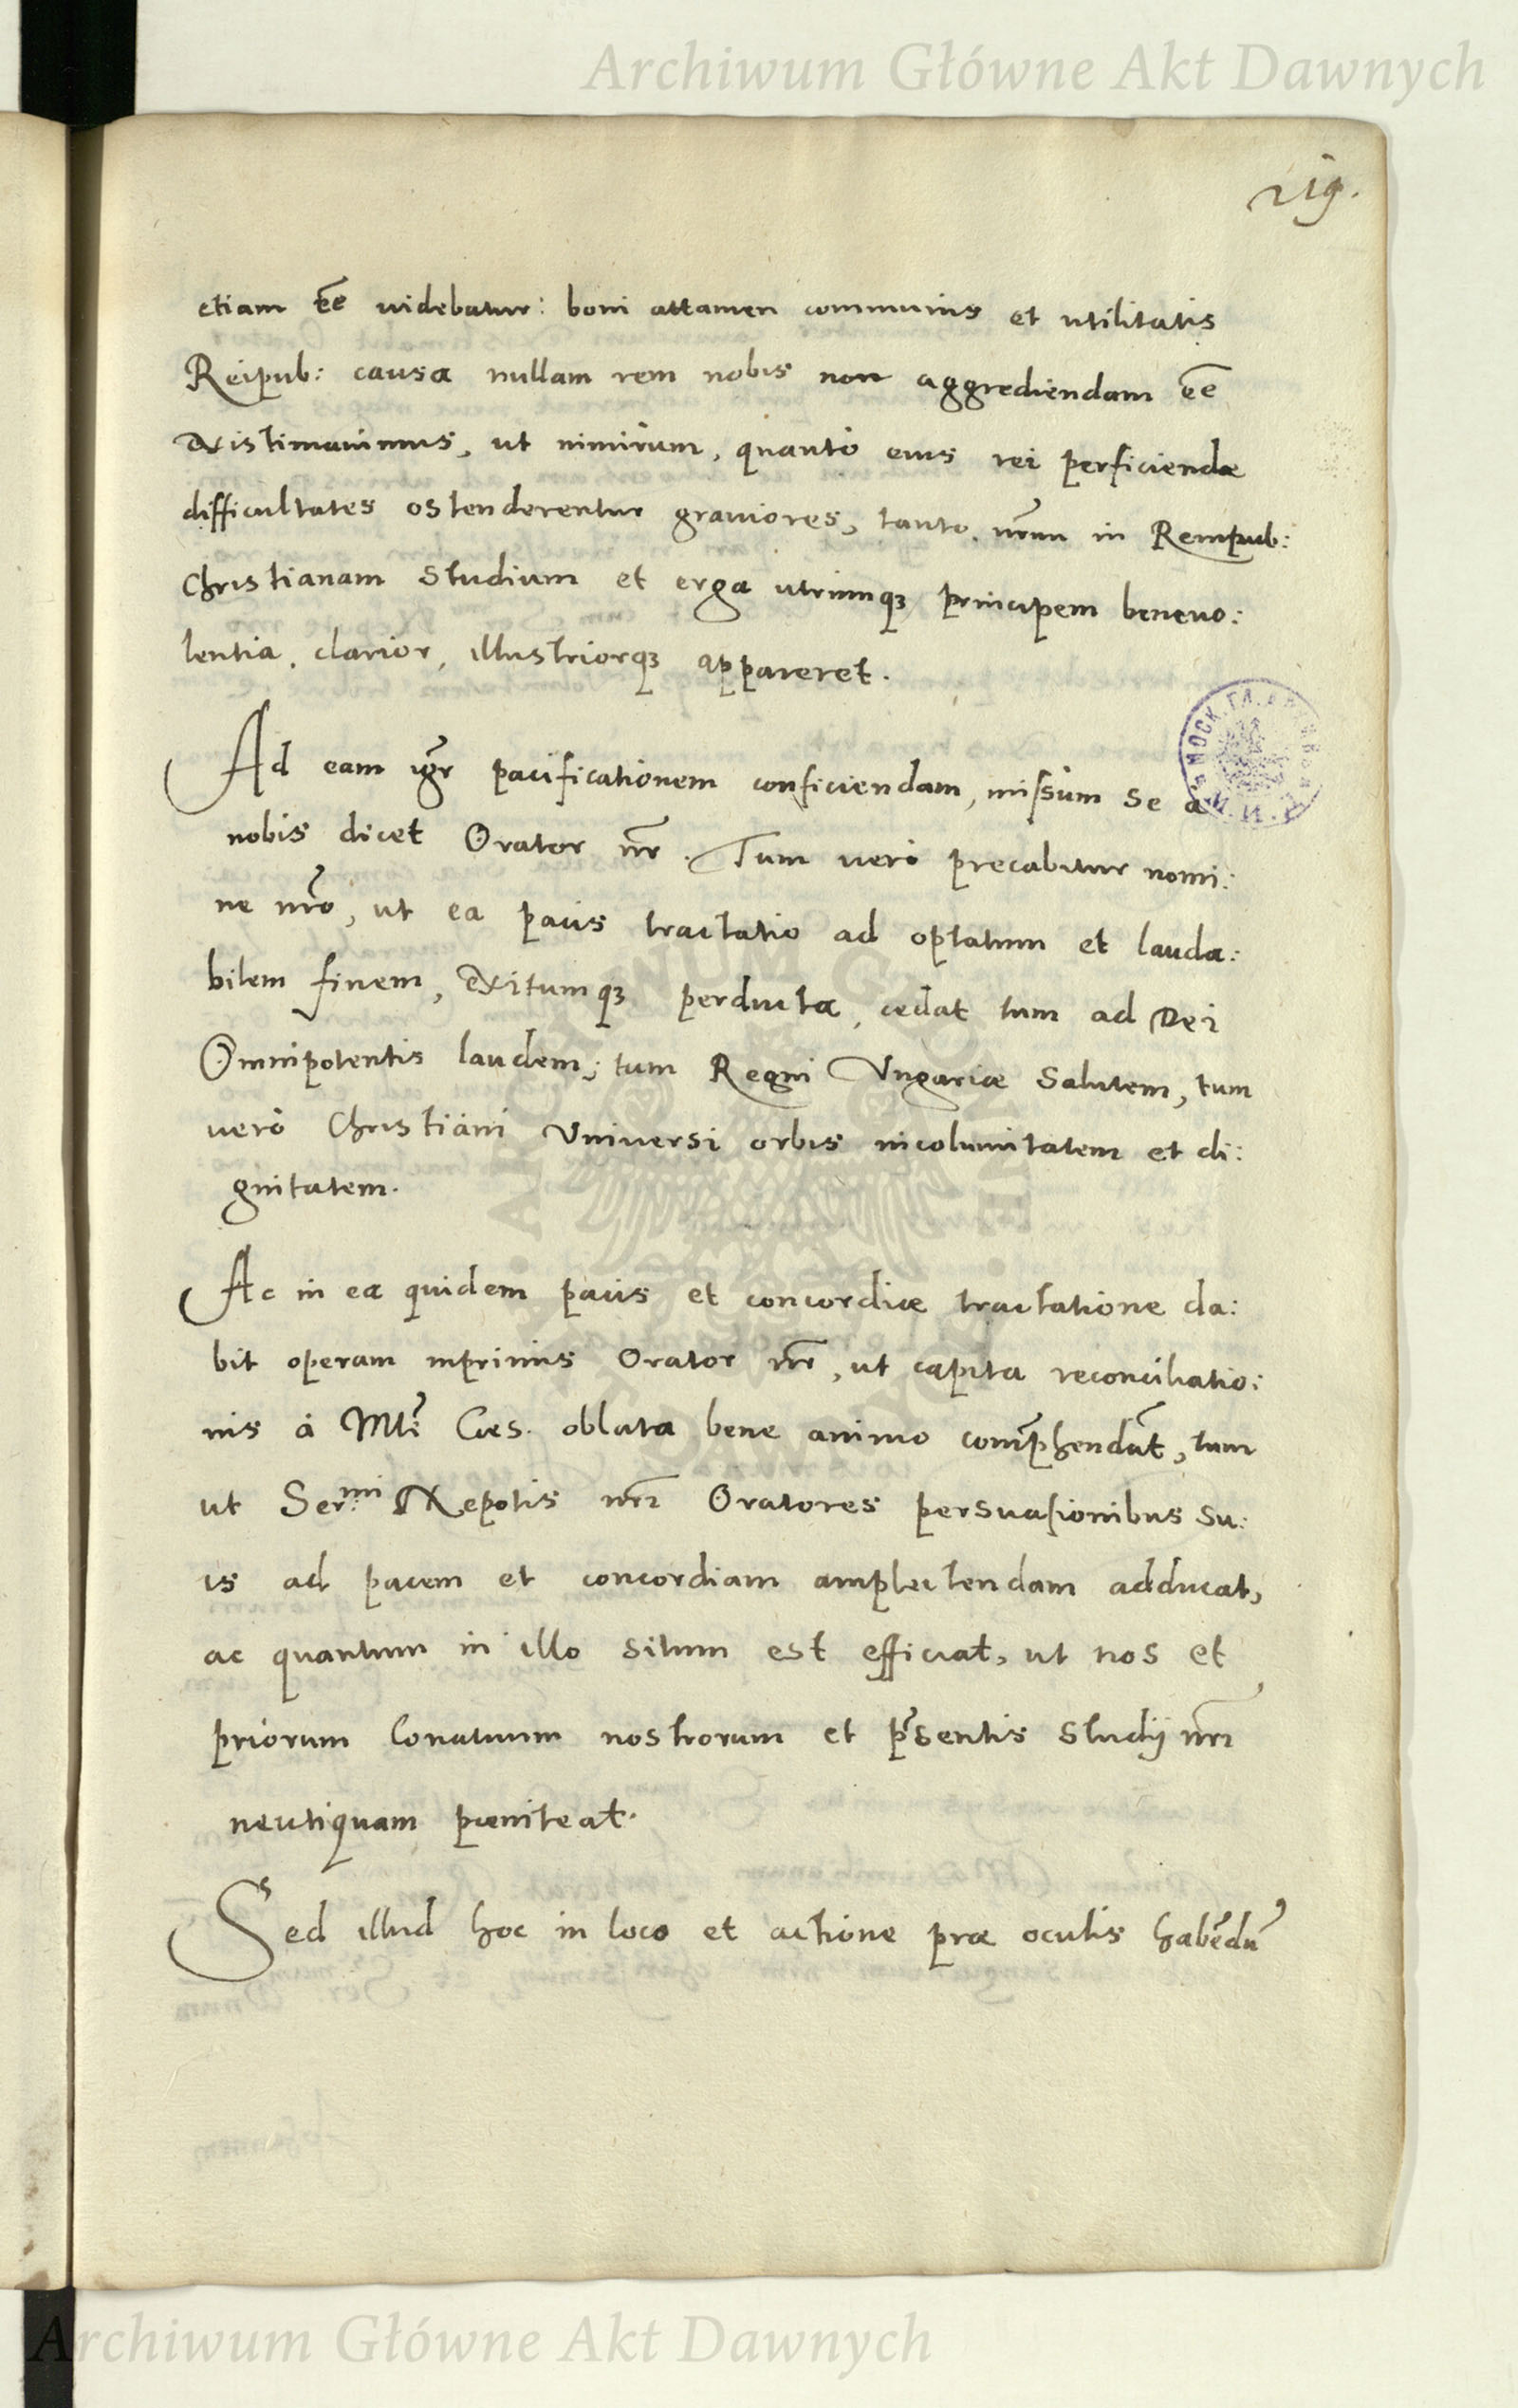 Archiwum Główne Akt Dawnych
219.
etiam eẽ uidebatur: boni attamen communis et utilitatis
Reipub: causa nullam rem nobis non aggrediendam eẽ
existimauimus, ut nimirum, quantò eius rei perficiendæ
difficultates ostenderentur grauiores, tanto nr̃um in Rempub:
Christianam studium et erga utrumqꝫ principem beneuo:
lentia, clarior, illustriorqꝫ appareret.
Ad eam igr̃ pacificationem conficiendam, missum se a
nobis dicet Orator nr̃. Tum verò precabitur nomi:
ne nr̃o, ut ea pacis tractatio ad optatum et lauda:
bilem finem, exitumqꝫ perducta, cedat tum ad Dei
Omnipotentis laudem; tum Regni Vngariæ salutem, tum
uerò Christiani Vniversi orbis incolumitatem et di:
gnitatem.
Ac in ea quidem pacis et concordiæ tractatione da:
bit operam inprimis Orator nr̃, ut capita reconciliatio:
nis à Mtẽ Cæs. oblata bene animo comp̃hendat, tum
ut Ser.mi Nepotis nr̃i Oratores persuasionibus su:
is ad pacem et concordiam amplectendam adducat,
ac quantum in illo situm est efficiat, ut nos et
priorum Conatuum nostrorum et p̃sentis studij nr̃i
neutiquam pæniteat.
Sed illud hoc in loco et actione præ oculis habẽdũ
Archiwum Główne Akt Dawnych